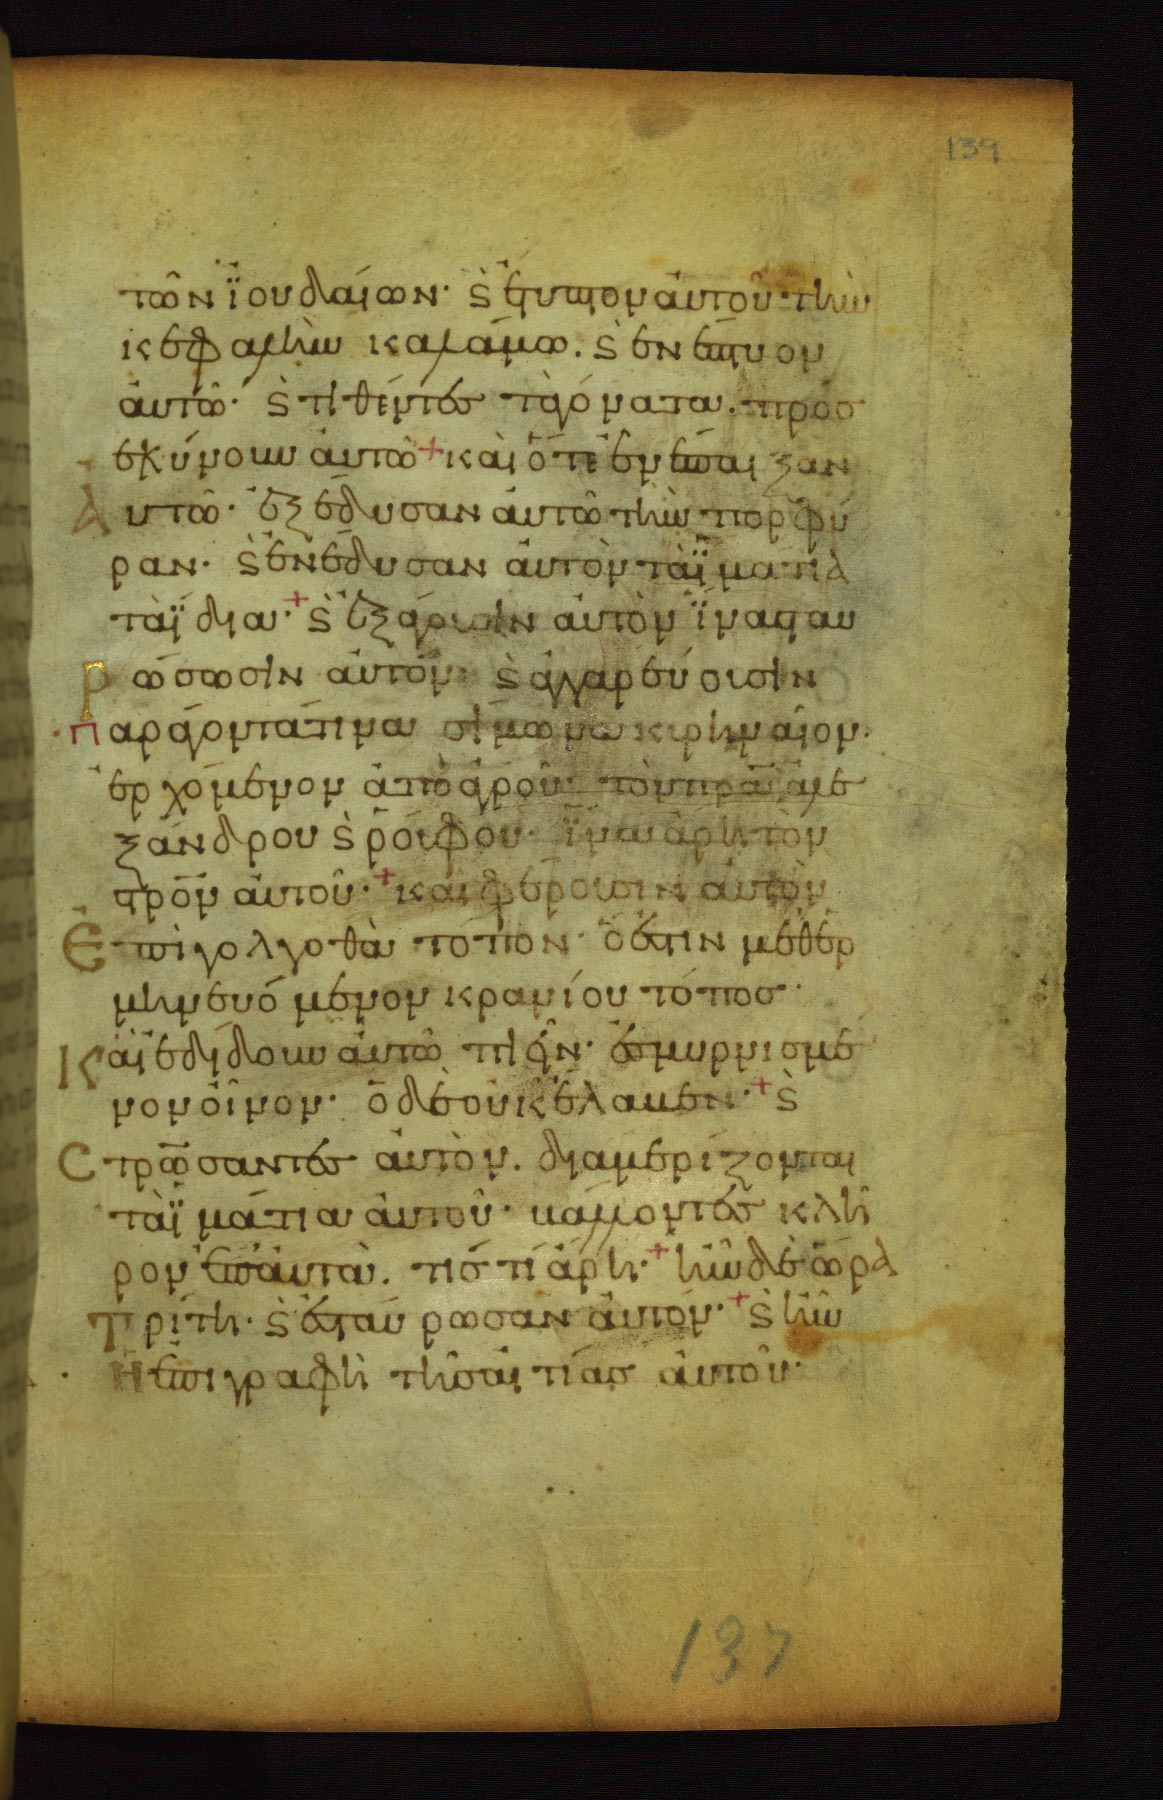 139
τῶν ἰουδαίων· ϛ ἔτυπτον αὐτοῦ τὴν
κεφαλὴν καλάμω. ϛ ἐνέπτυον
αὐτῶ· ϛ τιθέντες τὰ γόνατα. προσ
εκύνουν αὐτῶ + καὶ ὅτε ἐνέπαιξαν
αυτῶ· ἐξέδυσαν αὐτῶ τὴν πορφύ
ραν· ϛ ἐνέδυσαν αὐτὸν τὰ ϊμάτια
τὰ ϊδια· + ϛ ἐξάγουσιν αὐτὸν ϊνα σταυ
ρώσωσιν αὐτόν· ϛ ἀγγαρεύουσιν
παράγοντά τινα σίμωνα κιρηναῖον·
ἐρχόμενον ἀπὸ ἀγροῦ· τὸν πρ̅α ἀλε
ξάνδρου ϛ ῥούφου· ϊνα ἄρη τὸν
στρο̅ν αὐτοῦ· + καὶ φέρουσιν αὐτὸν
ἐπὶ γολγοθὰ τόπον· ὅ ἐστιν μεθερ
μηνευόμενον κρανίου τόπος·
καὶ ἐδίδουν αὐτῶ πιεῖν· ἐσμυρνισμέ
νον οἶνον· ὁ δὲ οὐκ ἔλαβεν· + ϛ
στρω̅σαντες αὐτὸν. διαμερίζονται
τὰ ϊμάτια αὐτοῦ· βάλλοντες κλῆ
ρον ἐπ' αὐτὰ. τίς τί ἄρη· + ἦν δὲ ὥρα
τρίτη· ϛ ἐσταύρωσαν αὐτόν· + ϛ ἦν
ἡ ἐπιγραφὴ τῆς αἰτίας αὐτοῦ·
137